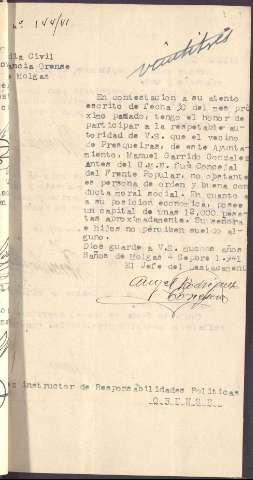 nº. 144/41
veintitres
dia Civil
ancia Orense
e Molgas
En contestación a su atento
escrito de fecha 20 del mes pró
ximo pasado, tengo el honor de
participar a la respetable au-
toridad de V.S. que el vecino
de Presqueiras, de este Ayunta-
miento, Manuel Garrido Gonzalez
antes del G.M.N. fué Concejal
del Frente Popular, no obstante
es persona de orden y buena con
ducta moral social. En cuanto a
a su posición económica, posee
un capital de unas 12,000 pese-
tas aproximadamente. Su señora
e hijos no perciben sueldo al-
guno.
Dios guarde a V.S. muchos años
Baños de Molgas 4 Sepbre 1.941
El Jefe del Destacamento
Angel Rodriguez
ez instructor de Responsabilidades Políticas
O R E N S E